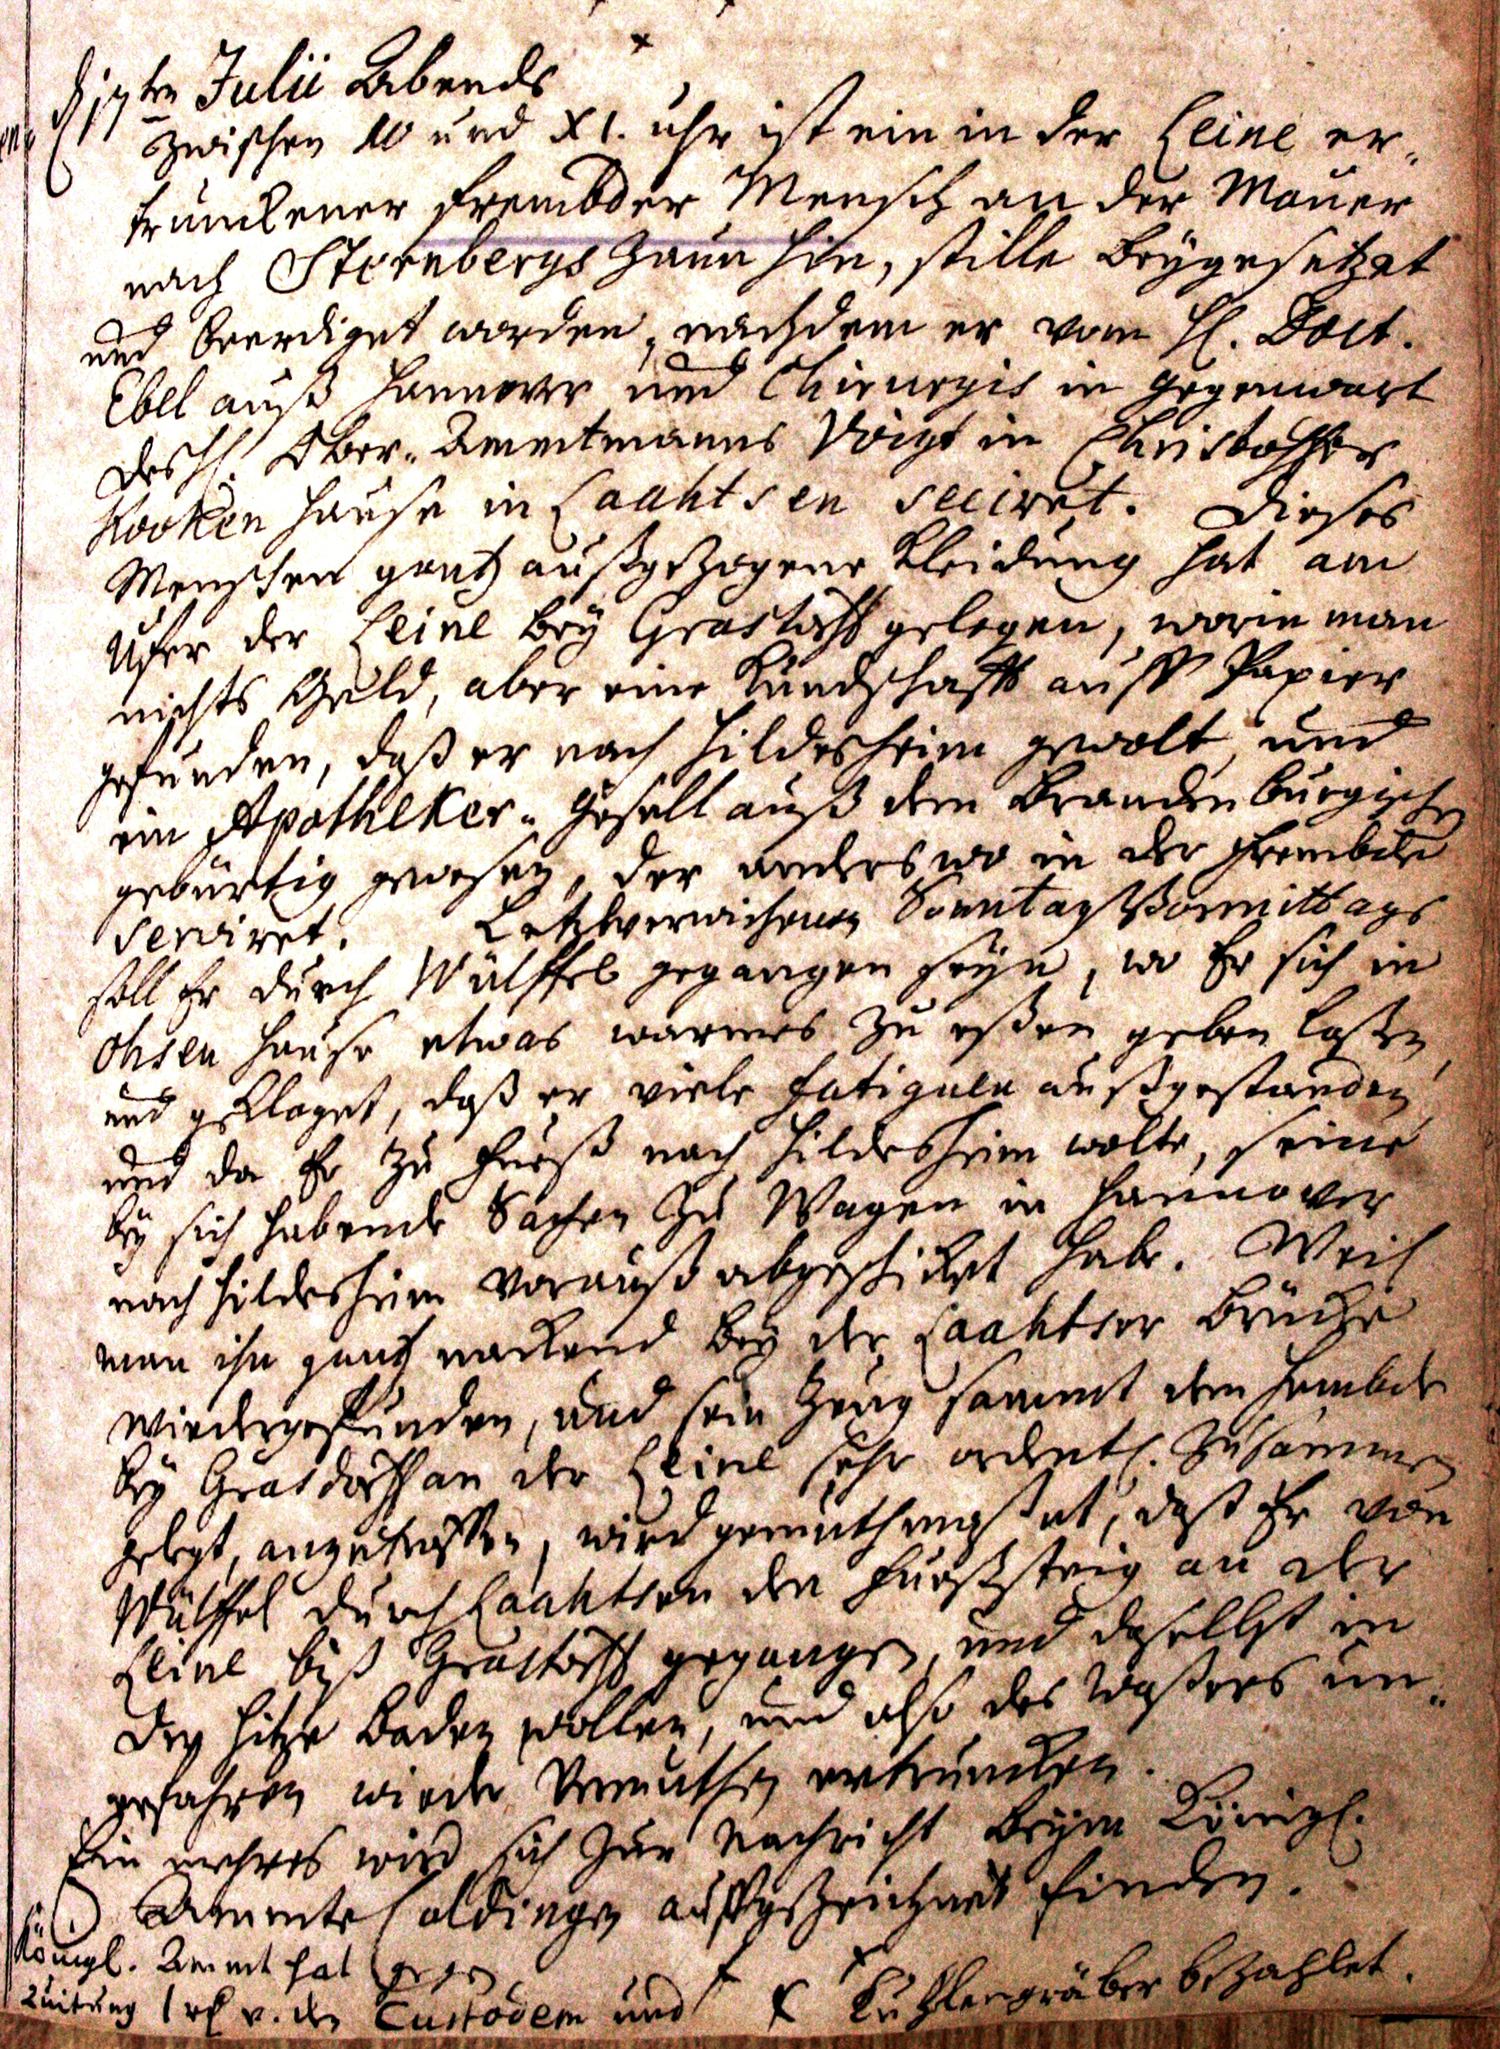 d 17ten Julii Abends
zwischen 10 und XI. uhr ist ein in der Leine er-
trunckener frembder Mensch an der Mauer
nach Sternbergs Zaun hin, stille beygesetzet
und beerdiget worden, nachdem er vom H. Doct.
Ebel auß Hannover und Chirurgis in gegenwart
des H. Ober-Ammtmanns Voigt in Christoffer
Kooken Hause in Laahtsen seciret. Dieses
Menschen gantz außgezogene Kleidung hat am
Ufer der Leine bey Grastorff gelegen, worin man
nichts Geld, aber eine Kundschafft auff Papier
gefunden, daß er nach Hildesheim gewolt, und
ein Apotheker-Gesell auß dem Brandenburgischen
gebürtig gewesen, der anderswo in der Frembde
serviret. Letztverwichenen Sonntag Vormittags
soll Er durch Wülffel gegangen seyn, wo Er sich in
Ohsen Hause etwas warmes zu eßen geben laßen
und geklaget, daß er viele fatiguen außgestanden
und da Er zu Fueß nach Hildesheim wolte, seine
bey sich habende Sachen zu Wagen in Hannover
nach Hildesheim vorauß abgeschicket habe. Weil
man ihn gantz nackend bey der Laahtser Brücke
wiedergefunden, und sein Zeug sammt dem Hembde
bey Grasdorff an der Leine sehr ordentl. zusammen
gelegt, anzutreffen, wird gemuthmaßet, daß Er von
Wülffel durch Laahtsen den Fueßsteig an der
Leine biß Grastorff gegangen, und daselbst in
der Hitze baden wollen, und also des Waßers un-
erfahren wieder Vermuthen ertruncken.
Ein mehres wird sich zur Nachricht beym Königl.
Ammte Coldingen auffgezeichnet finden.
Königl. Ammt hat gegen
Quitung 1 rl v. den Custodem und Kuhlengräber bezahlet.